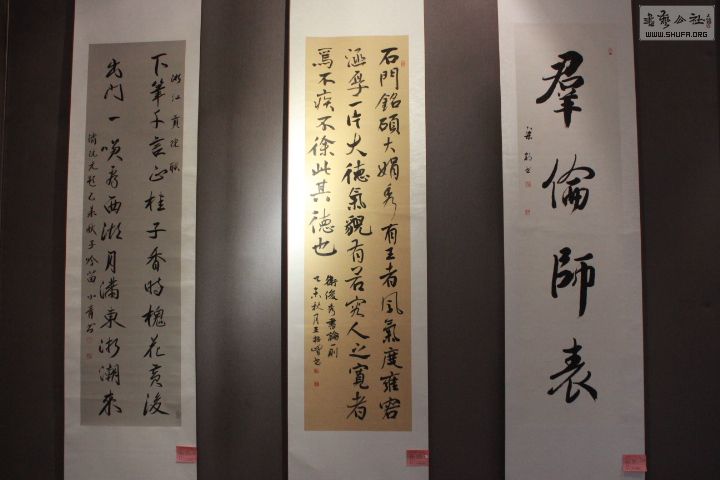 書藝公社
WWW.SHUFA.ORG
羣倫師表
石門銘碩大娟秀有王者風氣度雍容
涵孕一片大德氣觀有若 人之寬者
焉不疾不徐此其德也
衛俊秀書論一則
乙未秋月王
浙江貢院聯
下筆千言正桂子香時槐花黃後
出門一咲看西湖月滿東浙潮來
清阮元題乙未秋 吟笛小齋